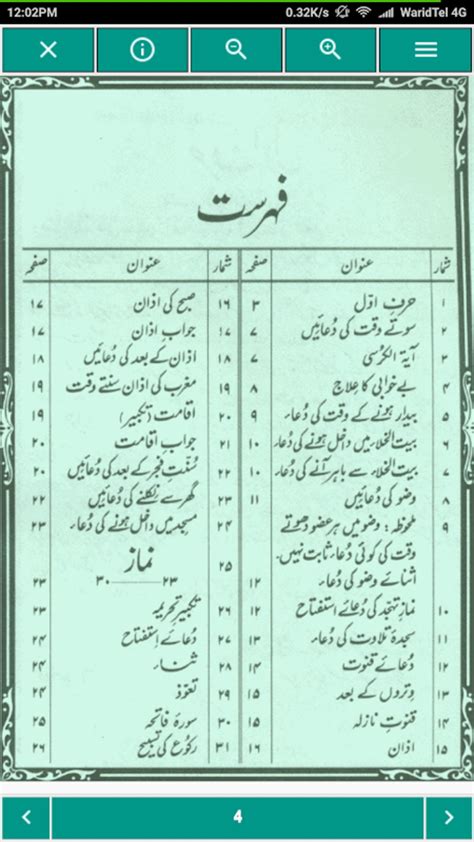 12:02PM 0.32K/s WaridTel 4G
فہرست
شمار عنوان صفحہ
۱ حرفِ اوّل ۳
۲ سوتے وقت کی دُعائیں ۷
۳ آیۃ الکرسی ۷
۴ بے خوابی کا علاج ۸
۵ بیدار ہونے کے وقت کی دُعاء ۹
۶ بیت الخلاء میں داخل ہونے کی دُعا ۱۰
۷ بیت الخلاء سے باہر آنے کی دُعاء ۱۰
۸ وضو کی دُعائیں ۱۱
۹ ملحوظہ: وضو میں ہر عضو دھوتے
وقت کی کوئی دُعاء ثابت نہیں۔
اثنائے وضو کی دُعاء ۱۲
۱۰ نمازِ تہجد کی دُعائے استفتاح ۱۲
۱۱ سجدۂ تلاوت کی دُعاء ۱۳
۱۲ دُعائے قنوت ۱۴
۱۳ وتروں کے بعد ۱۵
۱۴ قنوتِ نازلہ ۱۵
۱۵ اذان ۱۶
شمار عنوان صفحہ
۱۶ صبح کی اذان ۱۷
۱۷ جوابِ اذان ۱۷
۱۸ اذان کے بعد کی دُعائیں ۱۸
۱۹ مغرب کی اذان سنتے وقت ۱۹
۲۰ اقامت (تکبیر) ۱۹
۲۱ جوابِ اقامت ۲۰
۲۲ سُنّتِ فجر کے بعد کی دُعائیں ۲۰
۲۳ گھر سے نکلنے کی دُعائیں ۲۲
۲۴ مسجد میں داخل ہونے کی دُعاء ۲۳
نماز
۲۵ ۲۳ — ۳۰
۲۶ تکبیرِ تحریمہ ۲۳
۲۷ دُعائے اِستفتاح ۲۴
۲۸ ثناء ۲۴
۲۹ تعوّذ ۲۴
۳۰ سورۂ فاتحہ ۲۵
۳۱ رکوع کی تسبیح ۲۶
4